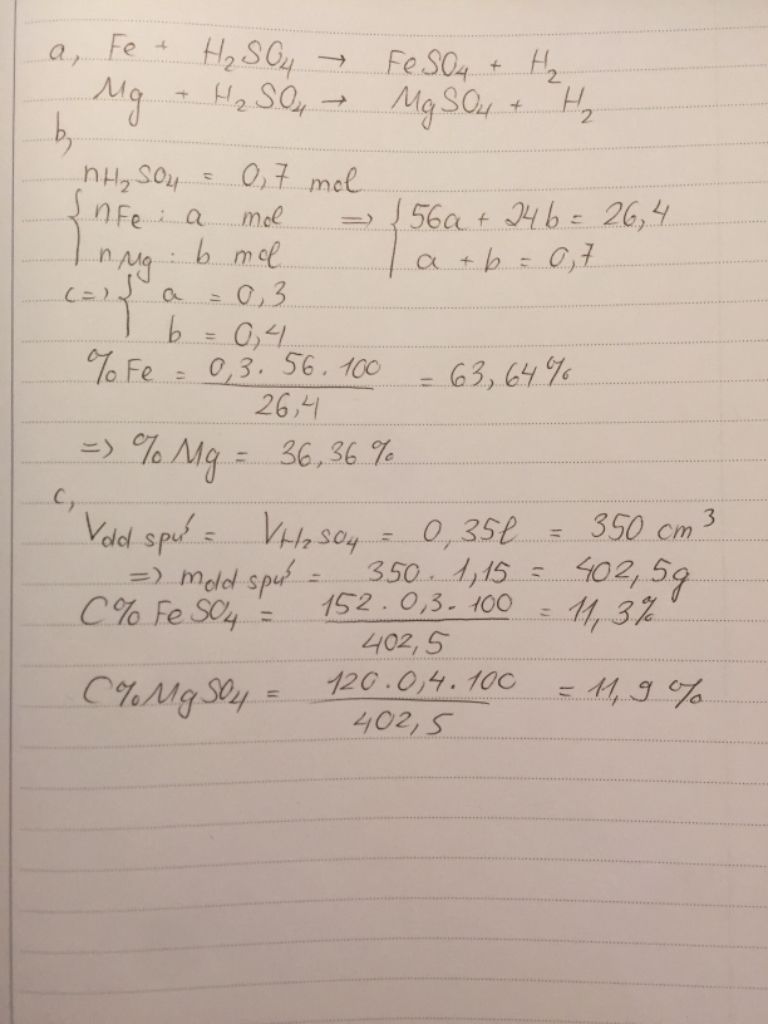 a, Fe + H₂SO₄ → FeSO₄ + H₂
Mg + H₂SO₄ → MgSO₄ + H₂
b,
nH₂SO₄ = 0,7 mol
{ nFe : a mol => { 56a + 24b = 26,4
nMg : b mol a + b = 0,7
<=> { a = 0,3
b = 0,4
%Fe = 0,3. 56. 100 = 63,64%
26,4
=> %Mg = 36,36 %
c,
Vdd spư = VH₂SO₄ = 0,35l = 350 cm³
=> mdd spư = 350. 1,15 = 402,5g
C% FeSO₄ = 152. 0,3. 100 = 11,3%
402,5
C%MgSO₄ = 120.0,4.100 = 11,9 %
402,5